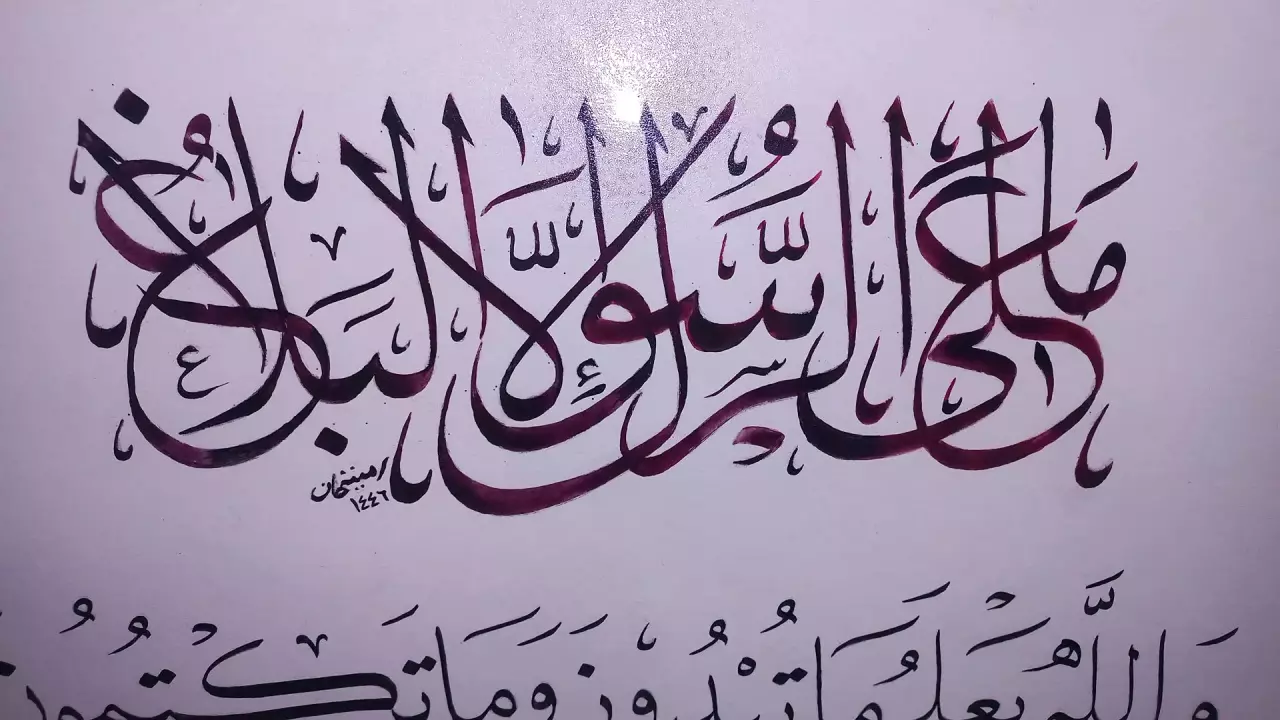 مَا عَلَى الرَّسُولِ إِلَّا الْبَلَاغُ
١٤٤٦
وَاللَّهُ يَعْلَمُ مَا تُبْدُونَ وَمَا تَكْتُمُونَ